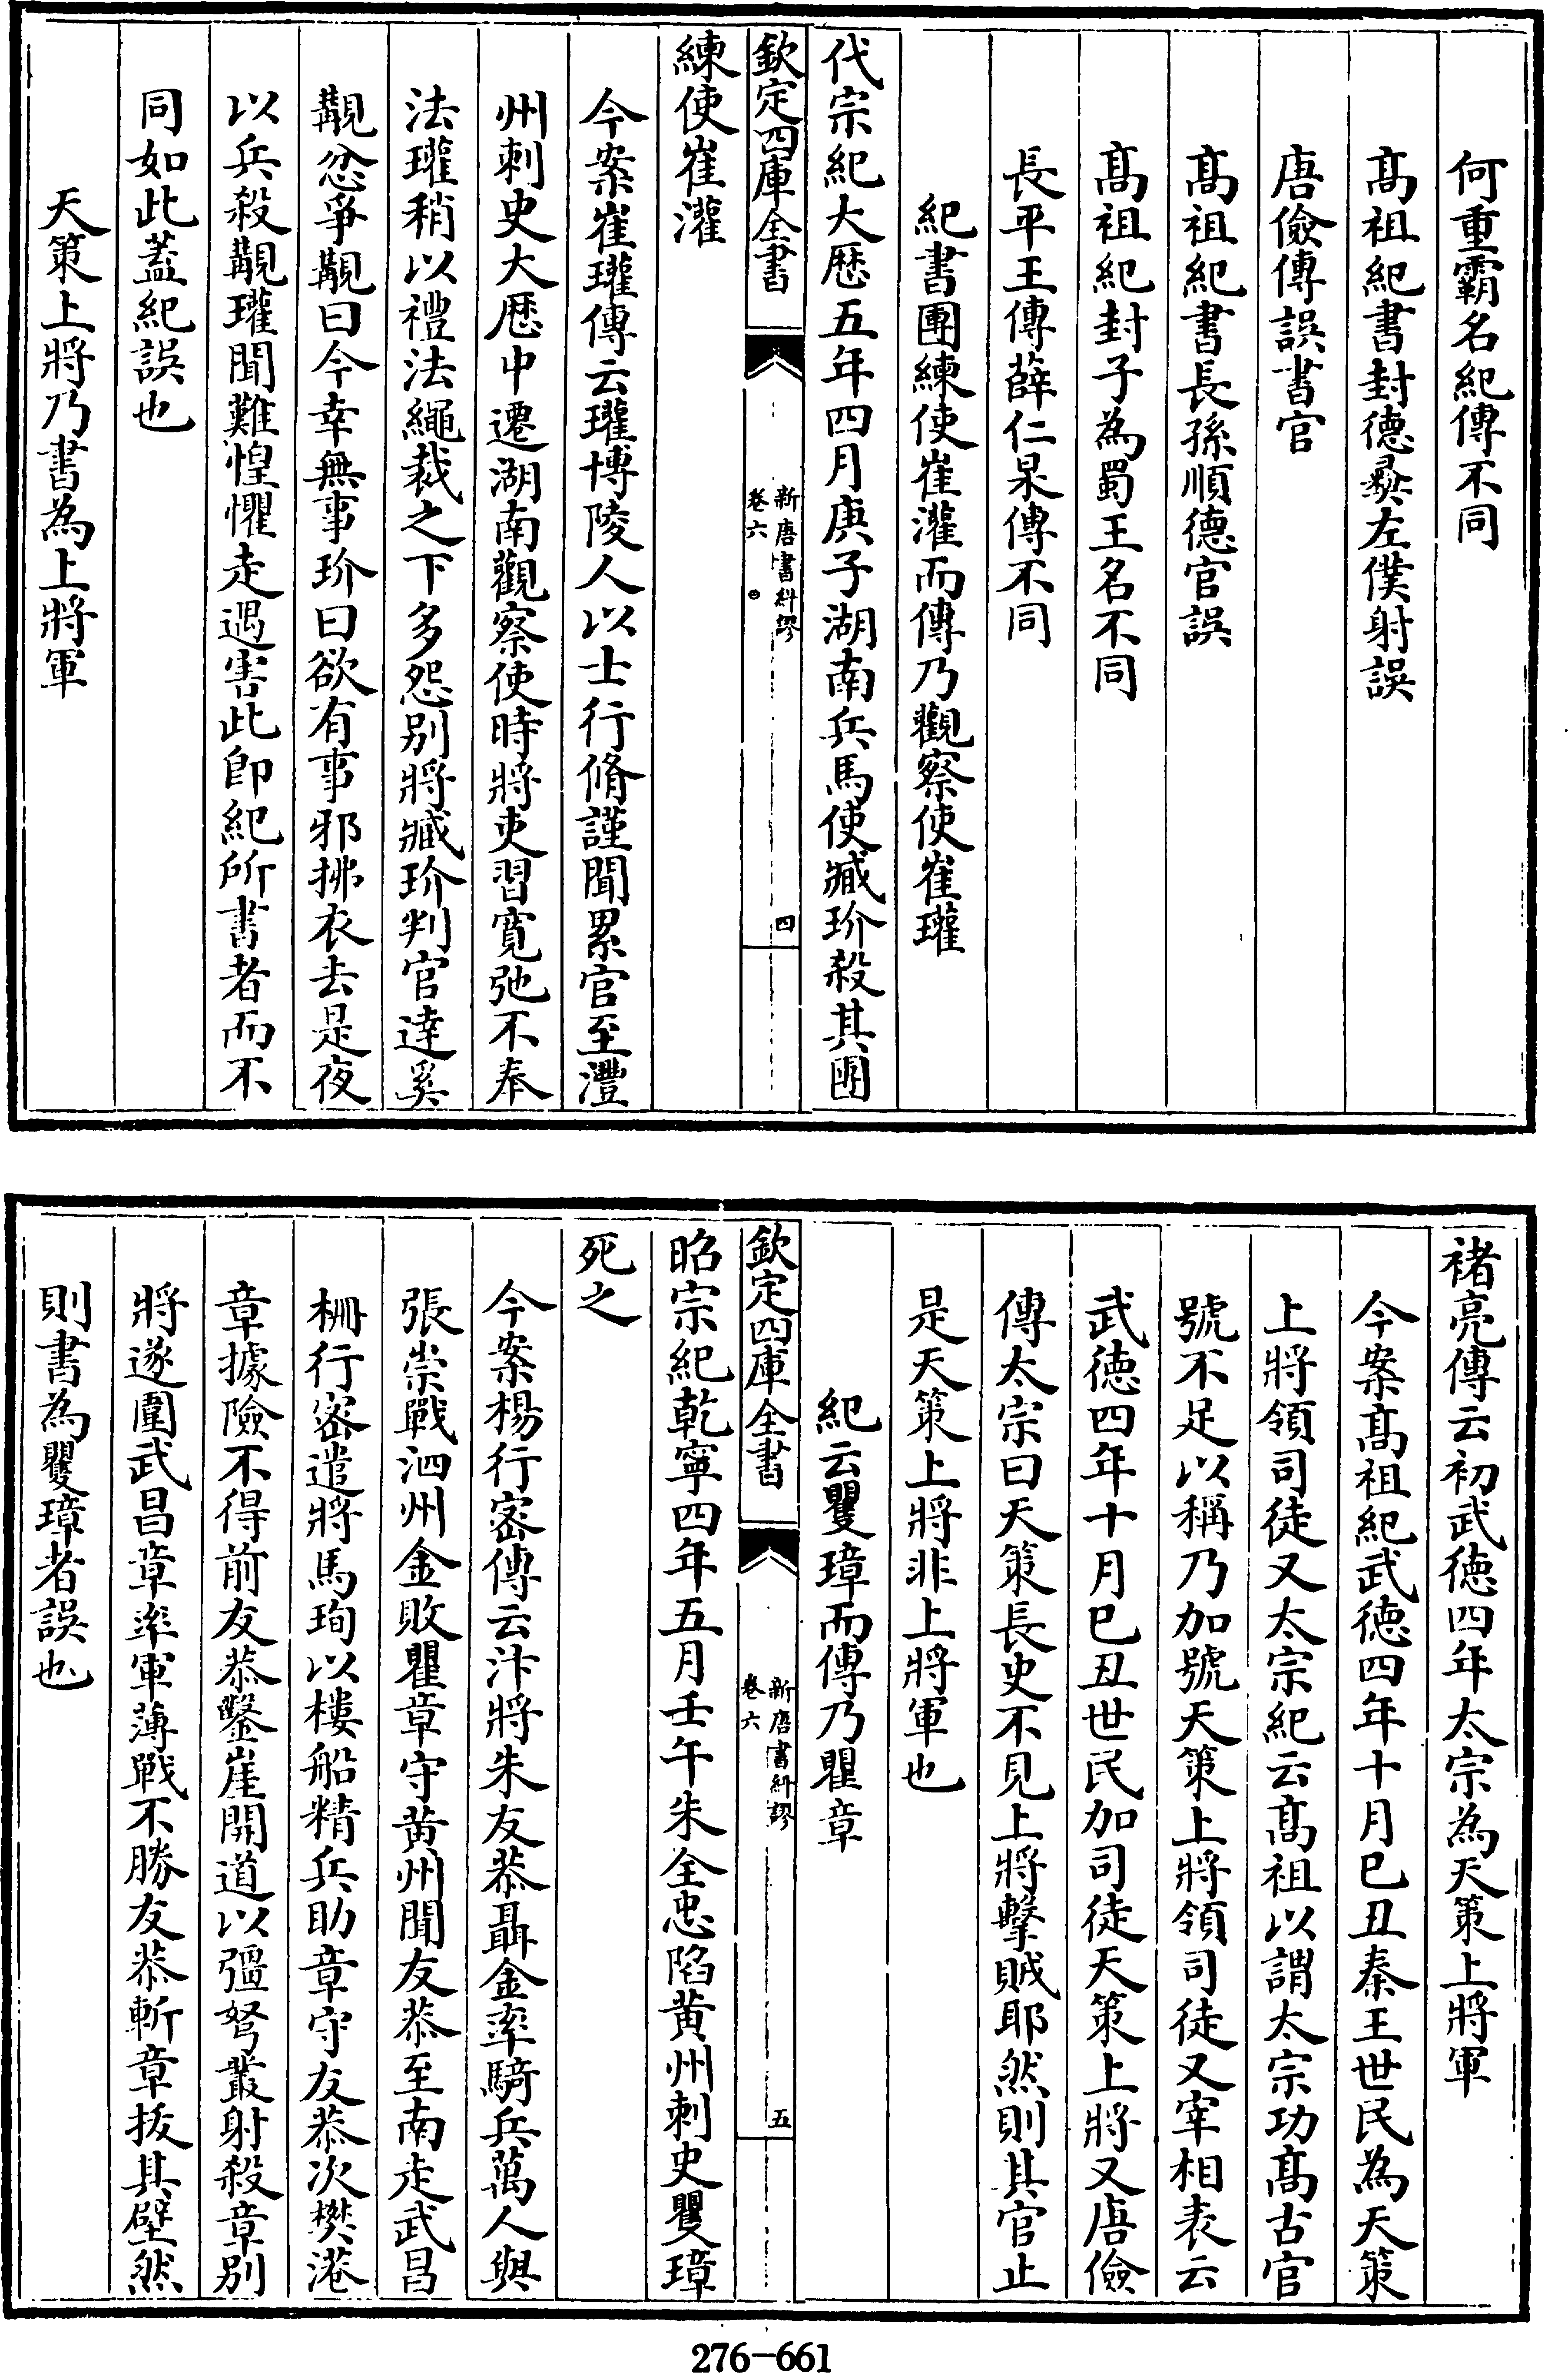 何重霸名紀傳不同
髙祖紀書封德彞左僕射誤
唐儉傳誤書官
髙祖紀書長孫順德官誤
髙祖紀封子為蜀王名不同
長平王傳薛仁杲傳不同
紀書團練使崔灌而傳乃觀察使崔瓘
代宗紀大厯五年四月庚子湖南兵馬使臧玠殺其團
欽定四庫全書
新唐書糾謬
卷六
四
練使崔灌
今案崔瓘傳云瓘博陵人以士行脩謹聞累官至澧
州刺史大厯中遷湖南觀察使時將吏習寛弛不奉
法瓘稍以禮法繩裁之下多怨别將臧玠判官達奚
覯忿爭覯曰今幸無事玠曰欲有事邪拂衣去是夜
以兵殺覯瓘聞難惶懼走遇害此即紀所書者而不
同如此蓋紀誤也
天策上將乃書為上將軍
褚亮傳云初武徳四年太宗為天策上將軍
今案髙祖紀武徳四年十月巳丑秦王世民為天策
上將領司徒又太宗紀云髙祖以謂太宗功髙古官
號不足以稱乃加號天策上將領司徒又宰相表云
武徳四年十月巳丑世民加司徒天策上將又唐儉
傳太宗曰天策長史不見上將擊賊耶然則其官止
是天策上將非上將軍也
紀云矍璋而傳乃瞿章
欽定四庫全書
新唐書糾謬
卷六
五
昭宗紀乾寧四年五月壬午朱全忠陷黄州刺史矍璋
死之
今案楊行密傳云汴將朱友恭聶金率騎兵萬人與
張崇戰泗州金敗瞿章守黄州聞友恭至南走武昌
柵行密遣將馬珣以樓船精兵助章守友恭次樊港
章據險不得前友恭鑿崖開道以彊弩叢射殺章别
將遂圍武昌章率軍薄戰不勝友恭斬章拔其壁然
則書為矍璋者誤也
276-661